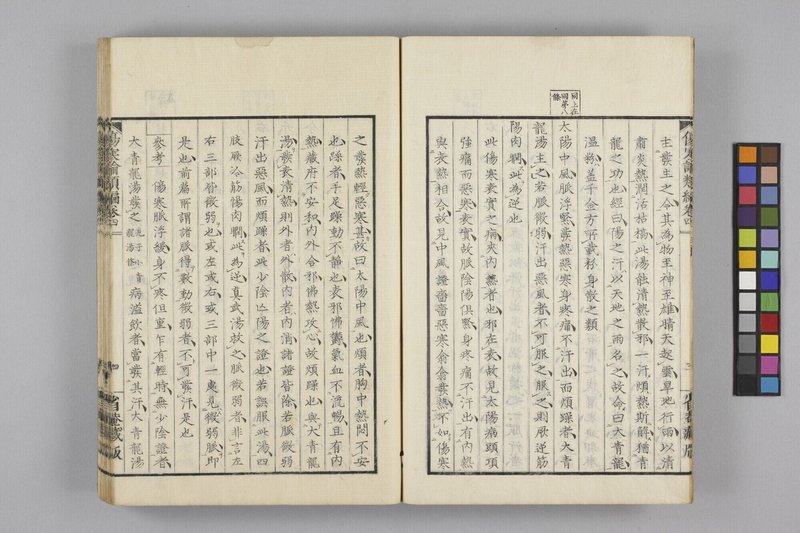 傷寒論類編卷四
主發主之令其為物至神至雄晴天起靈旱地行雨以清
肅炎熱潤活枯槁此湯能清熱散邪一汗煩熱斯解猶青
龍之功也經曰陽之汗以天地之雨名之故命曰大青龍
溫粉蓋千金方所載粉身散之類
同上在
同第八
條
太陽中風脈浮緊發熱惡寒身疼痛不汗出而煩躁者大青
龍湯主之若脈微弱汗出惡風者不可服之服之則厥逆筋
惕肉瞤此為逆也
此傷寒表實之病夾內熱者也邪在表故見太陽病頭項
強痛而惡寒表實故脈陰陽俱緊身疼痛不汗出有內熱
與表熱相合故見中風證嗇嗇惡寒翕翕發熱不如傷寒
之發熱輕惡寒甚故曰太陽中風也煩者胸中熱悶不安
也躁者手足躁動不靜也表邪怫鬱氣血不流暢且有內
熱藏府不安和內外合邪怫熱攻心故煩躁也與大青龍
湯發表清熱則外者外散內者內消諸證皆除若脈微弱
汗出惡風而煩躁者此少陰亡陽之證也若誤服此湯四
肢厥冷筋惕肉瞤此為逆真武湯救之脈微弱者非言左
右三部皆微弱也或左或右或三部中一處見微弱脈即
是也前篇所謂諸脈得數動微弱者不可發汗是也
參考
傷寒脈浮緩身不疼但重乍有輕時無少陰證者
大青龍湯發之
病溢飲者當發其汗大青龍湯
傷寒論類編卷四
四
省卷藏版